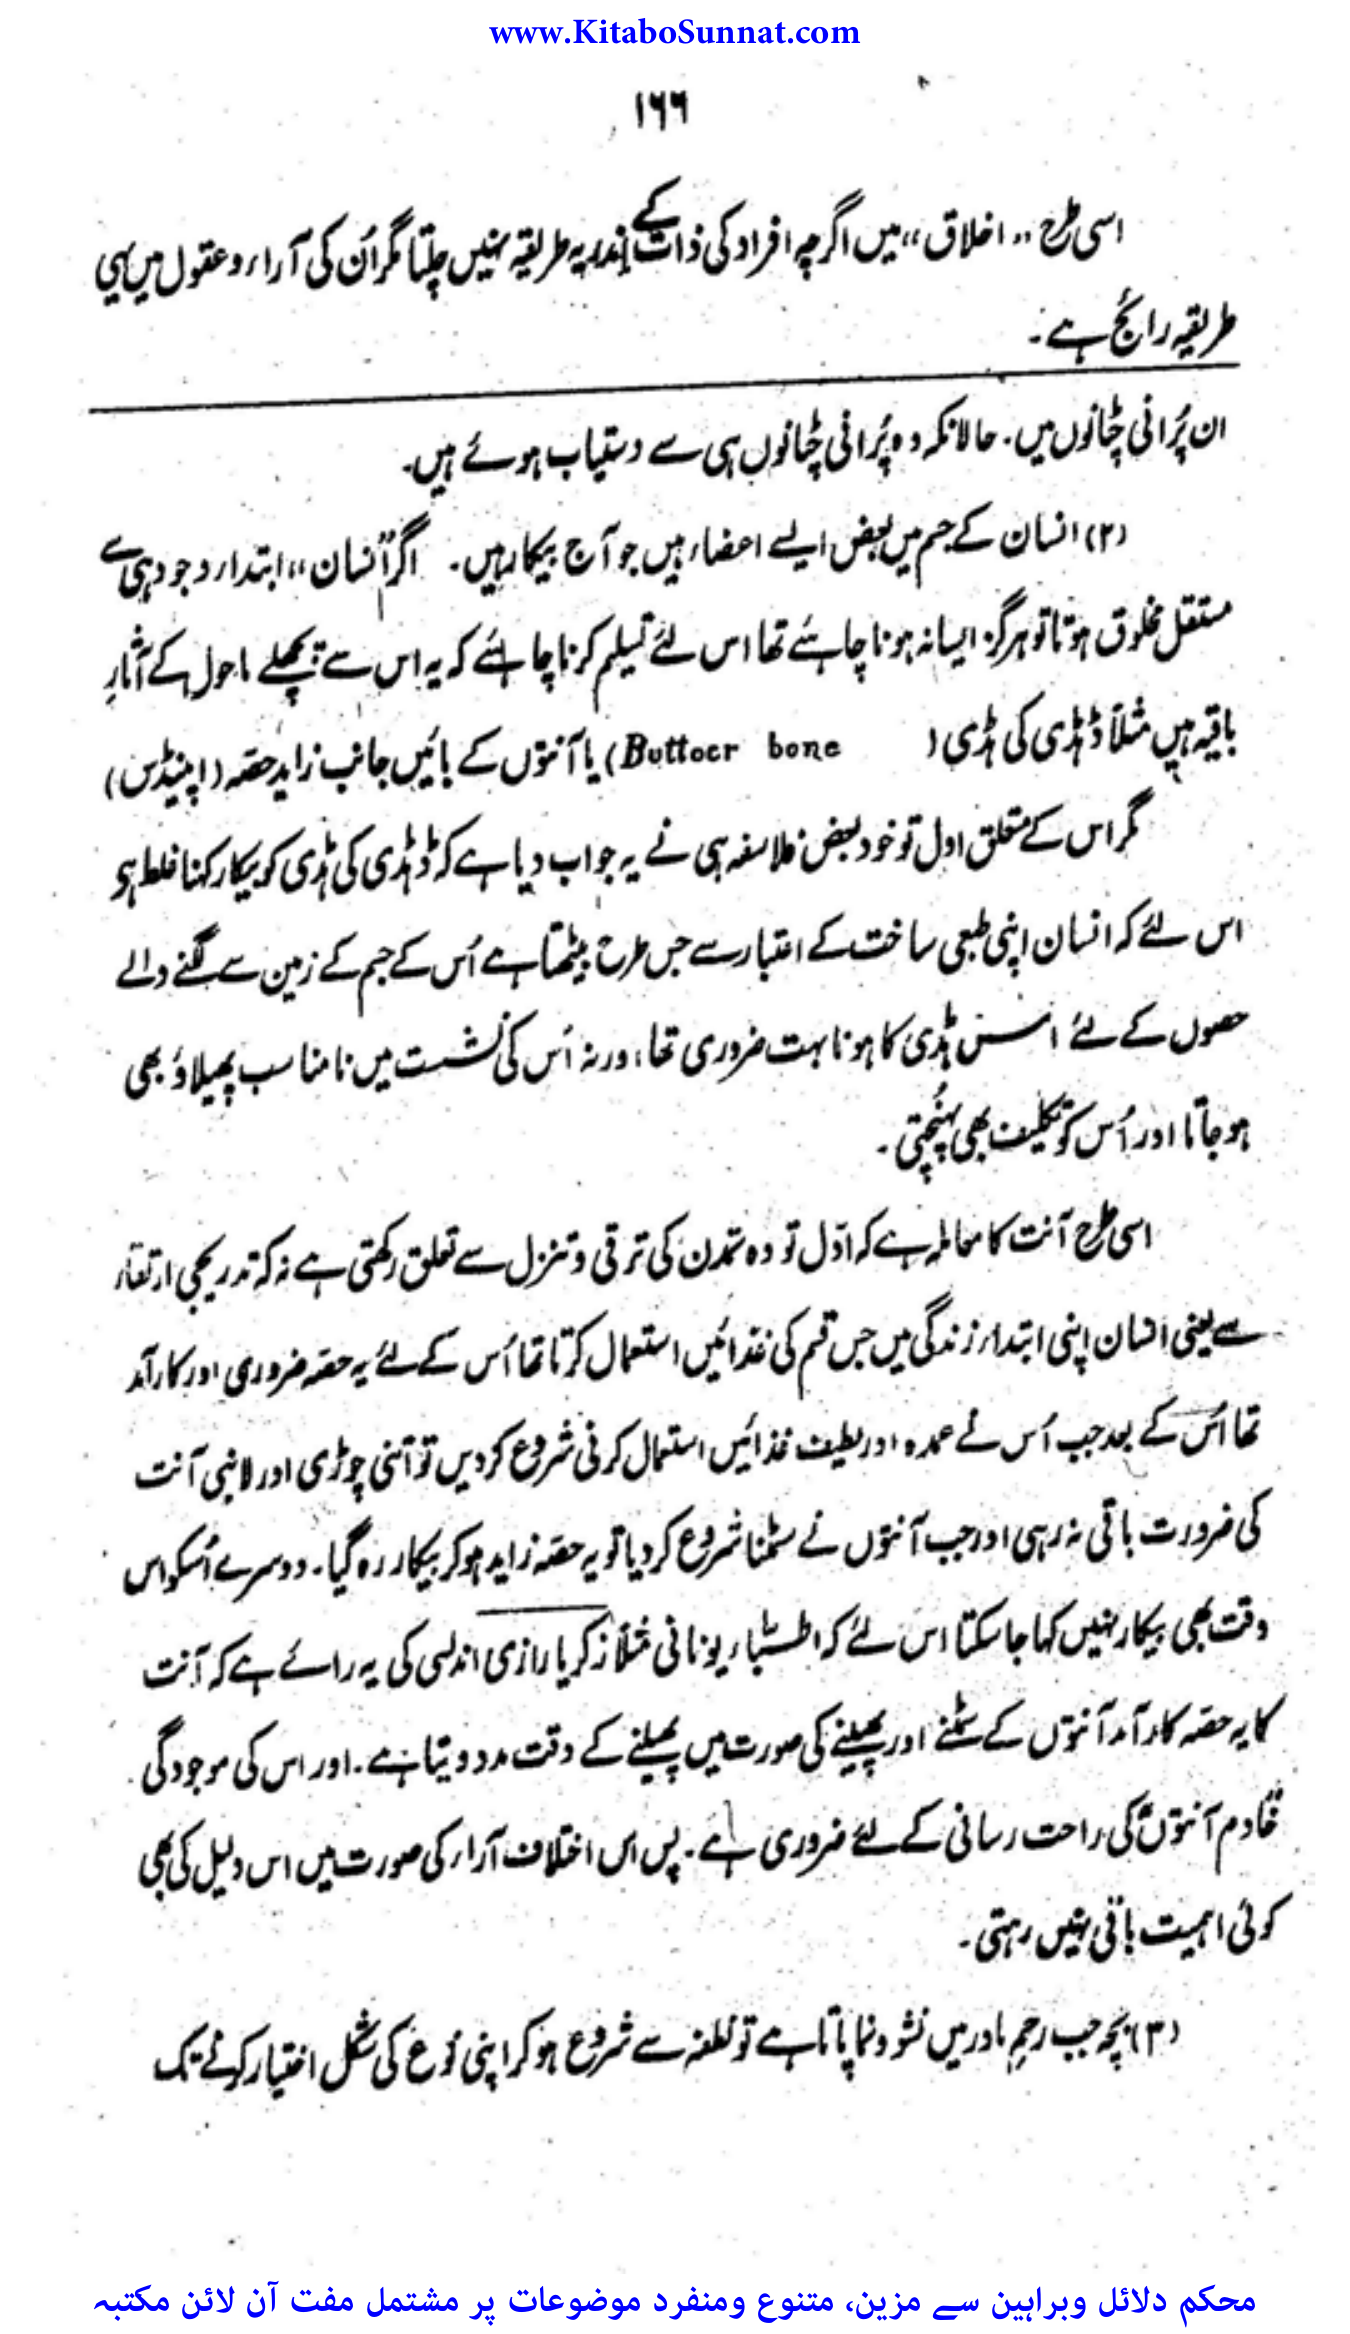 www.KitaboSunnat.com
۱۶۶
اسی طرح ”اخلاق“ میں اگرچہ افراد کی ذات کے اندر یہ طریقہ نہیں چلتا مگر اُن کی آراء و عقول میں یہی
طریقہ رائج ہے۔
ان پُرانی چٹانوں میں۔ حالانکہ وہ پُرانی چٹانوں ہی سے دستیاب ہوئے ہیں۔
(۲) انسان کے جسم میں بعض ایسے اعضاء ہیں جو آج بیکار ہیں۔ اگر ”انسان“ ابتداء وجود ہی سے
مستقل مخلوق ہوتا تو ہرگز ایسا نہ ہونا چاہئے تھا اس لئے تسلیم کرنا چاہئے کہ یہ اس سے پچھلے ماحول کے آثارِ
باقیہ ہیں مثلاً ڈھڈی کی ہڈی (Buttocr bone) یا آنتوں کے بائیں جانب زاید حصہ (اپینڈس)
مگر اس کے متعلق اول تو خود بعض فلاسفہ ہی نے یہ جواب دیا ہے کہ ڈھڈی کی ہڈی کو بیکار کہنا غلط ہو
اس لئے کہ انسان اپنی طبعی ساخت کے اعتبار سے جس طرح بیٹھتا ہے اُس کے جسم کے زمین سے لگنے والے
حصوں کے لئے اس ہڈی کا ہونا بہت ضروری تھا، ورنہ اُس کی نشست میں نا مناسب پھیلاؤ بھی
ہو جاتا اور اُس کو تکلیف بھی پہنچتی۔
اسی طرح آنت کا معاملہ ہے کہ اوّل تو وہ تمدن کی ترقی و تنزل سے تعلق رکھتی ہے نہ کہ تدریجی ارتقاء
سے یعنی انسان اپنی ابتداء زندگی میں جس قسم کی غذائیں استعمال کرتا تھا اُس کے لئے یہ حصہ ضروری اور کارآمد
تھا اُس کے بعد جب اُس نے عمدہ اور لطیف غذائیں استعمال کرنی شروع کر دیں تو اتنی چوڑی اور لانبی آنت
کی ضرورت باقی نہ رہی اور جب آنتوں نے سمٹنا شروع کر دیا تو یہ حصہ زاید ہو کر بیکار رہ گیا۔ دوسرے اُسکو اس
وقت بھی بیکار نہیں کہا جا سکتا اس لئے کہ اطبّاء یونانی مثلاً زکریا رازی اندلسی کی یہ رائے ہے کہ آنت
کا یہ حصہ کارآمد آنتوں کے سمٹنے اور پھیلنے کی صورت میں پھیلنے کے وقت مدد دیتا ہے۔ اور اس کی موجودگی
”خادم آنتوں“ کی راحت رسانی کے لئے ضروری ہے۔ پس اس اختلاف آراء کی صورت میں اس دلیل کی بھی
کوئی اہمیت باقی نہیں رہتی۔
(۳) بچہ جب رحمِ مادر میں نشو و نما پاتا ہے تو نطفہ سے شروع ہو کر اپنی نوع کی شکل اختیار کرنے تک
محکم دلائل وبراہین سے مزین، متنوع ومنفرد موضوعات پر مشتمل مفت آن لائن مکتبہ